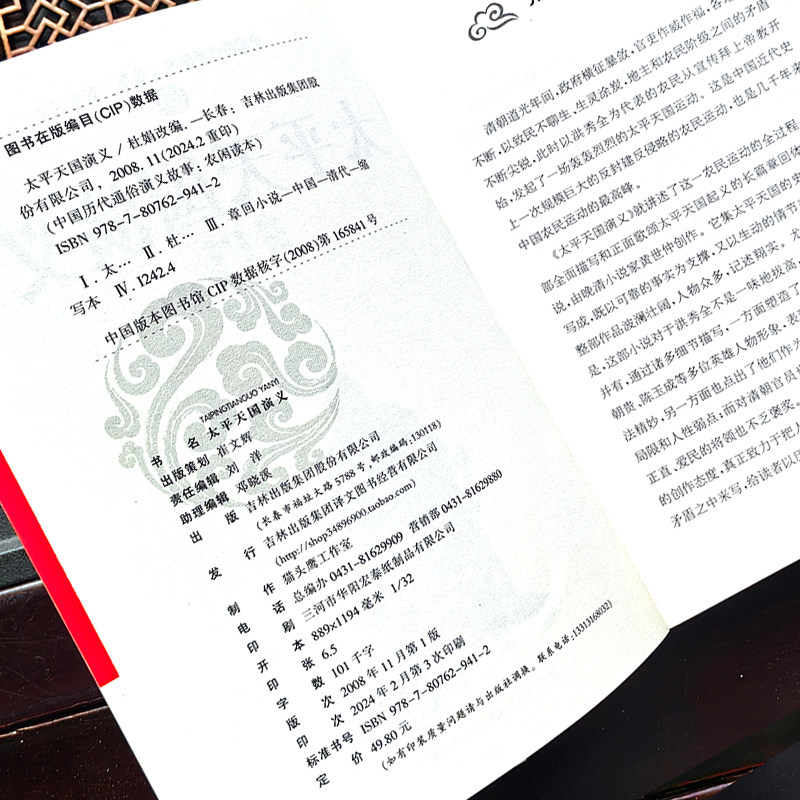 图书在版编目(CIP)数据
太平天国演义 / 杜娟改编. —长春: 吉林出版集团股
份有限公司, 2008. 11(2024.2 重印)
(中国历代通俗演义故事: 农闲读本)
ISBN 978-7-80762-941-2
Ⅰ. 太… Ⅱ. 杜… Ⅲ. 章回小说—中国—清代—缩
写本 Ⅳ. I242.4
中国版本图书馆 CIP 数据核字(2008)第 165841 号
TAIPINGTIANGUO YANYI
书 名 太平天国演义
出版策划 崔文辉
责任编辑 刘 洋
助理编辑 邓晓溪
出 版 吉林出版集团股份有限公司
(长春市福祉大路 5788 号, 邮政编码: 130118)
发 行 吉林出版集团译文图书经营有限公司
(http://shop34896900.taobao.com)
制 作 猫头鹰工作室
电 话 总编办 0431-81629909 营销部 0431-81629880
印 刷 三河市华阳宏泰纸制品有限公司
开 本 889×1194 毫米 1/32
印 张 6.5
字 数 101 千字
版 次 2008 年 11 月第 1 版
印 次 2024 年 2 月第 3 次印刷
标准书号 ISBN 978-7-80762-941-2
定 价 49.80 元
(如有印装质量问题请与出版社调换。联系电话: 13313168032)
清朝道光年间,政府横征暴敛,官吏作威作福,各
不断,以致民不聊生,生灵涂炭,地主和农民阶级之间的矛盾
不断尖锐,此时以洪秀全为代表的农民从宣传拜上帝教开
始,发起了一场轰轰烈烈的太平天国运动。这是中国近代史
上一次规模巨大的反封建反侵略的农民运动,也是几千年来
中国农民运动的最高峰。
《太平天国演义》就讲述了这一农民运动的全过程
部全面描写和正面歌颂太平天国起义的长篇章回体
说,由晚清小说家黄世仲创作。它集太平天国的史
写成,既以可靠的事实为支撑,又以生动的情节
整部作品波澜壮阔,人物众多,记述翔实。尤
是,这部小说对于洪秀全不是一味地拔高,
并有,通过诸多细节描写,一方面塑造了
朝贵、陈玉成等多位英雄人物形象,表
法精妙,另一方面也点出了他们作为
局限和人性弱点;而对清朝官员
正直、爱民的将领也不乏褒奖。
的创作态度,真正致力于把人
矛盾之中来写,给读者以